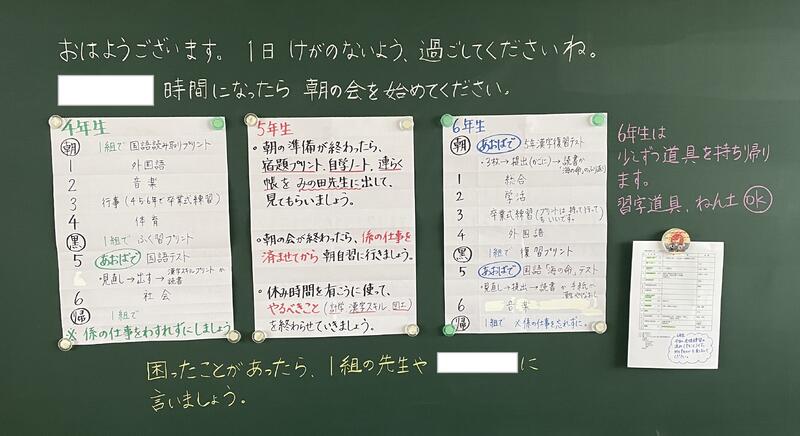 おはようございます。1日 けがのないよう、過ごしてくださいね。
時間になったら 朝の会を始めてください。
4年生
朝 1組で 国語読み取りプリント
1 外国語
2 音楽
3 行事（456年で卒業式練習）
4 体育
黒 1組で ふく習プリント
5 あおばで 国語テスト
・見直し→出す→漢字スキルプリント か
読書
6 社会
帰 1組で
※ 係の仕事をわすれずにしましょう
5年生
・朝の準備が終わったら、
宿題プリント、自学ノート、連らく
帳を みの田先生に出して、
見てもらいましょう。
・朝の会が終わったら、係の仕事を
済ませてから 朝自習に行きましょう。
・休み時間を有こうに使って、
やるべきこと（自学 漢字スキル 図工）
を終わらせていきましょう。
6年生
朝 あおばで 5年漢字復習テスト
・3枚→提出（かごに）→読書か
「海の命」のふり返り
1 総合
2 学活
3 卒業式練習（プリントは持って行って
もいいです。
4 外国語
黒 1組で 復習プリント
5 あおばで 国語「海の命」テスト
・見直し→提出→読書か 手紙か
6 音楽
帰 1組で ※係の仕事を忘れずに。
6年生は
少しずつ道具を持ち帰り
ます。
習字道具、ねん土 OK
困ったことがあったら、1組の先生や に
言いましょう。